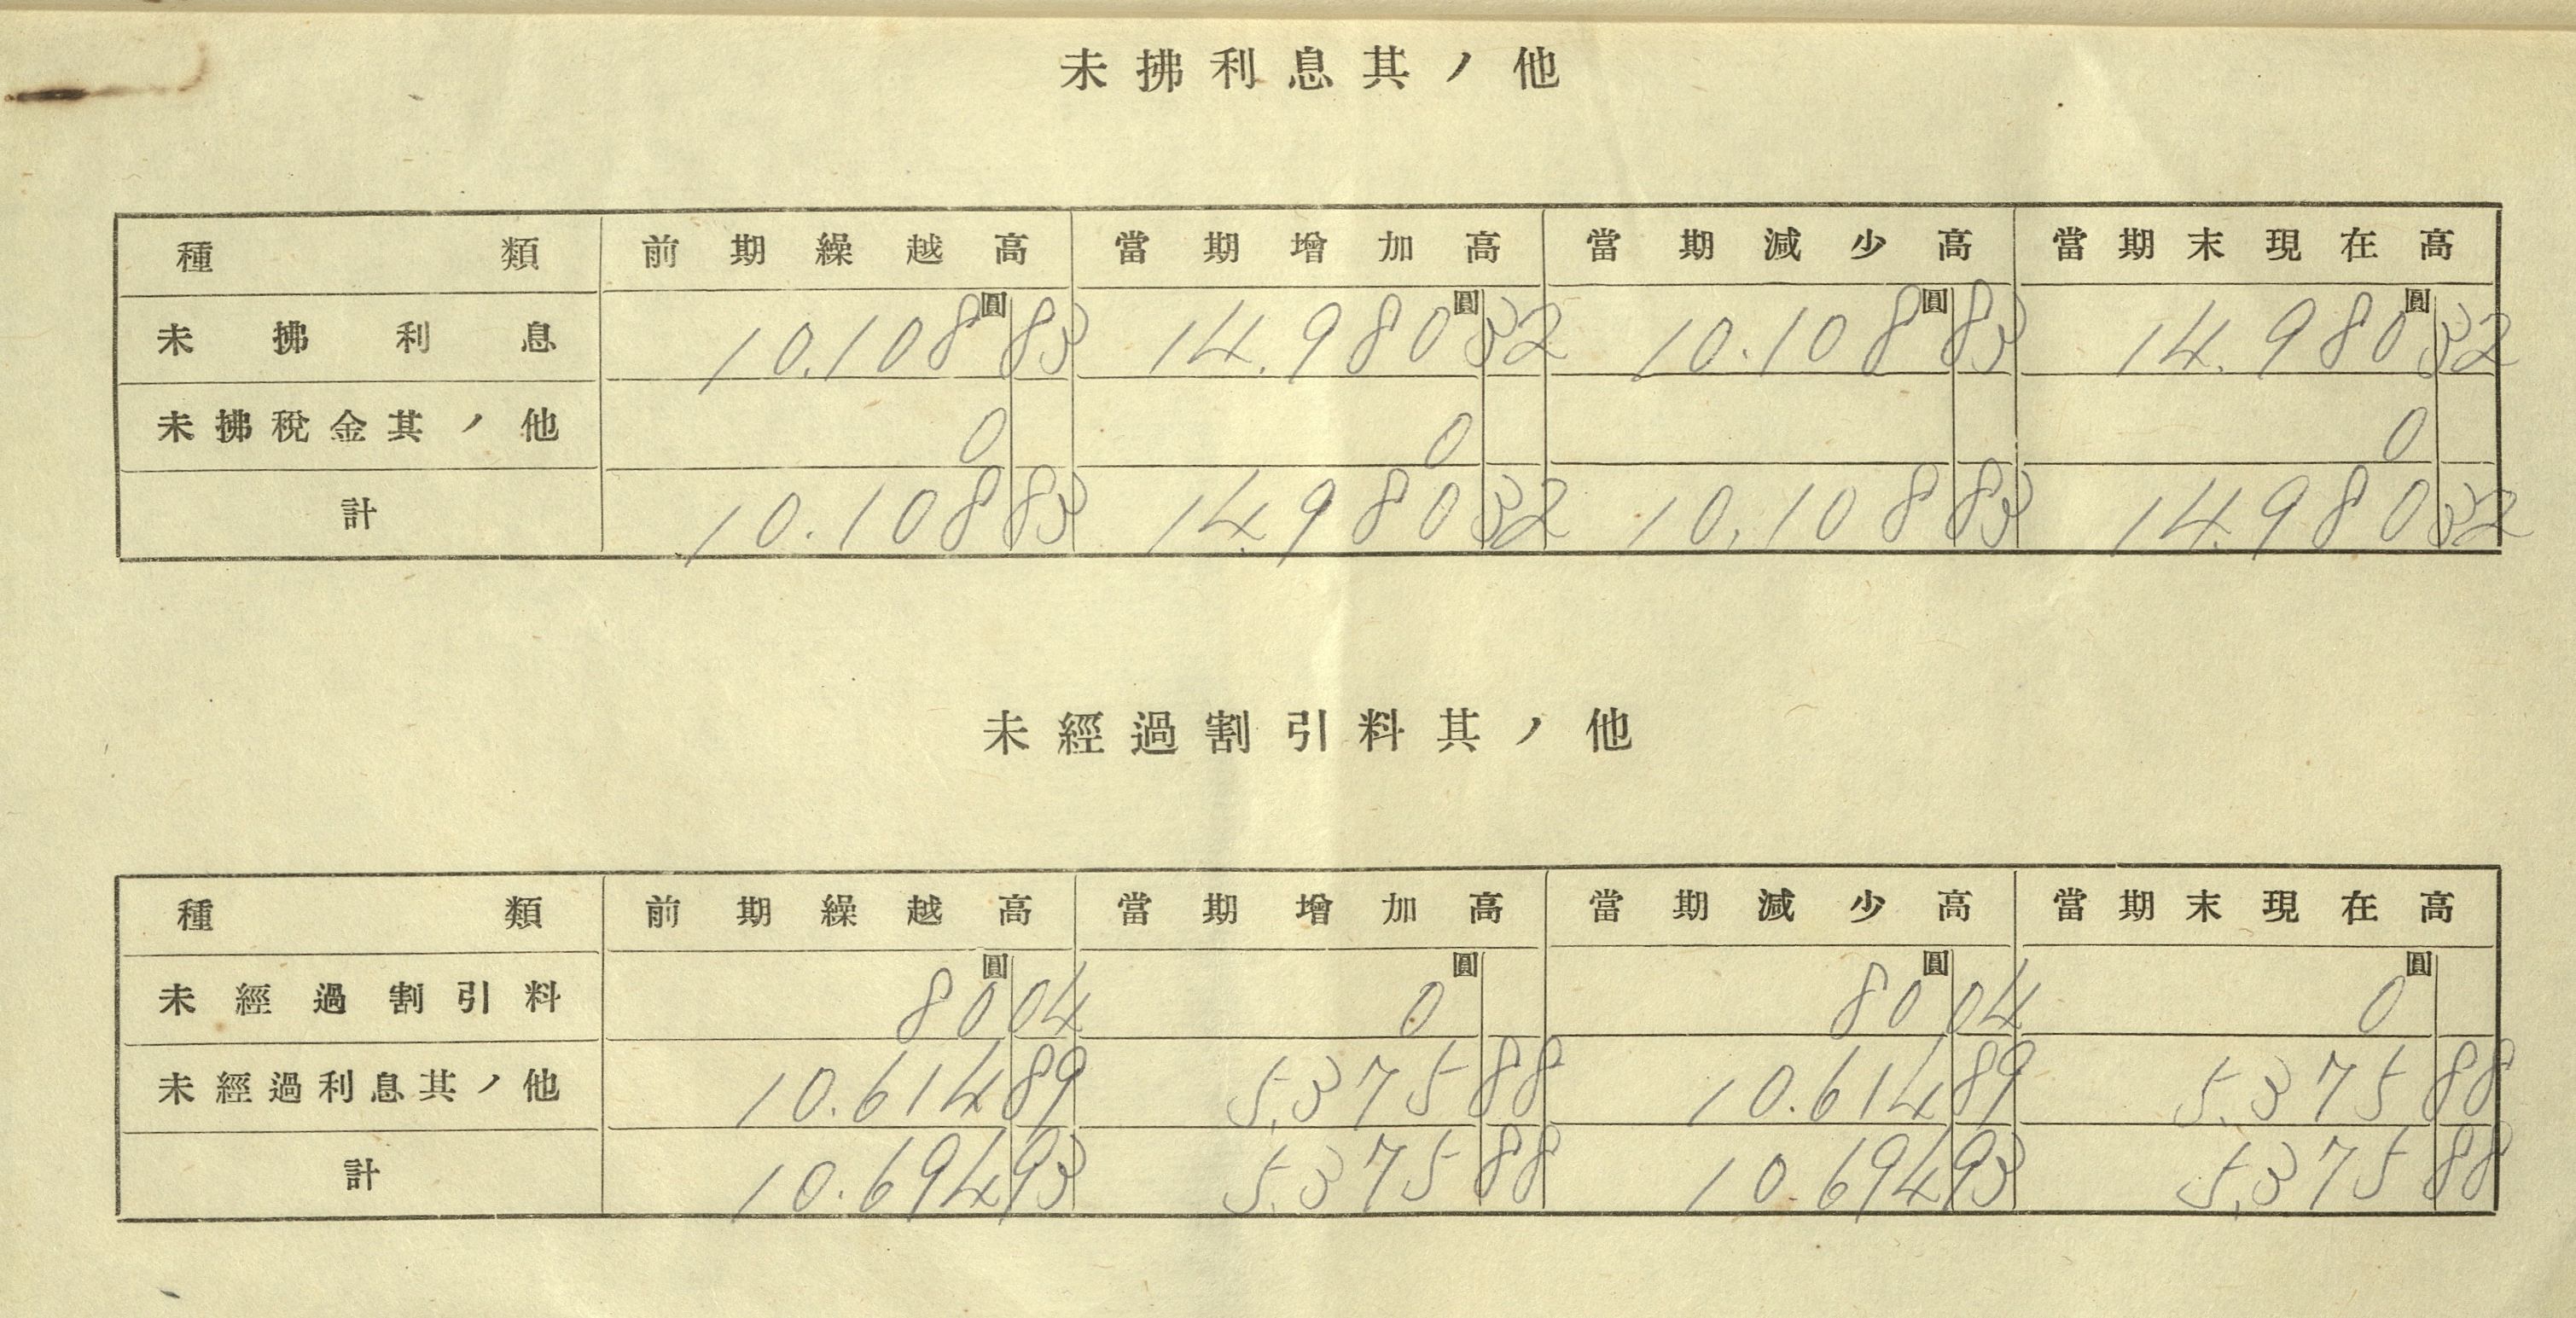 未拂利息其ノ他
種類 前期繰越高 當期增加高 當期減少高 當期末現在高
未拂利息 10.108圓83 14.980圓32 10.108圓83 14.980圓32
未拂稅金其ノ他 0 0 0
計 10.108 83 14.980 32 10.108 83 14.980 32
未經過割引料其ノ他
種類 前期繰越高 當期增加高 當期減少高 當期末現在高
未經過割引料 80圓04 0圓 80圓04 0圓
未經過利息其ノ他 10.614 89 5.375 88 10.614 89 5.375 88
計 10.694 93 5.375 88 10.694 93 5.375 88